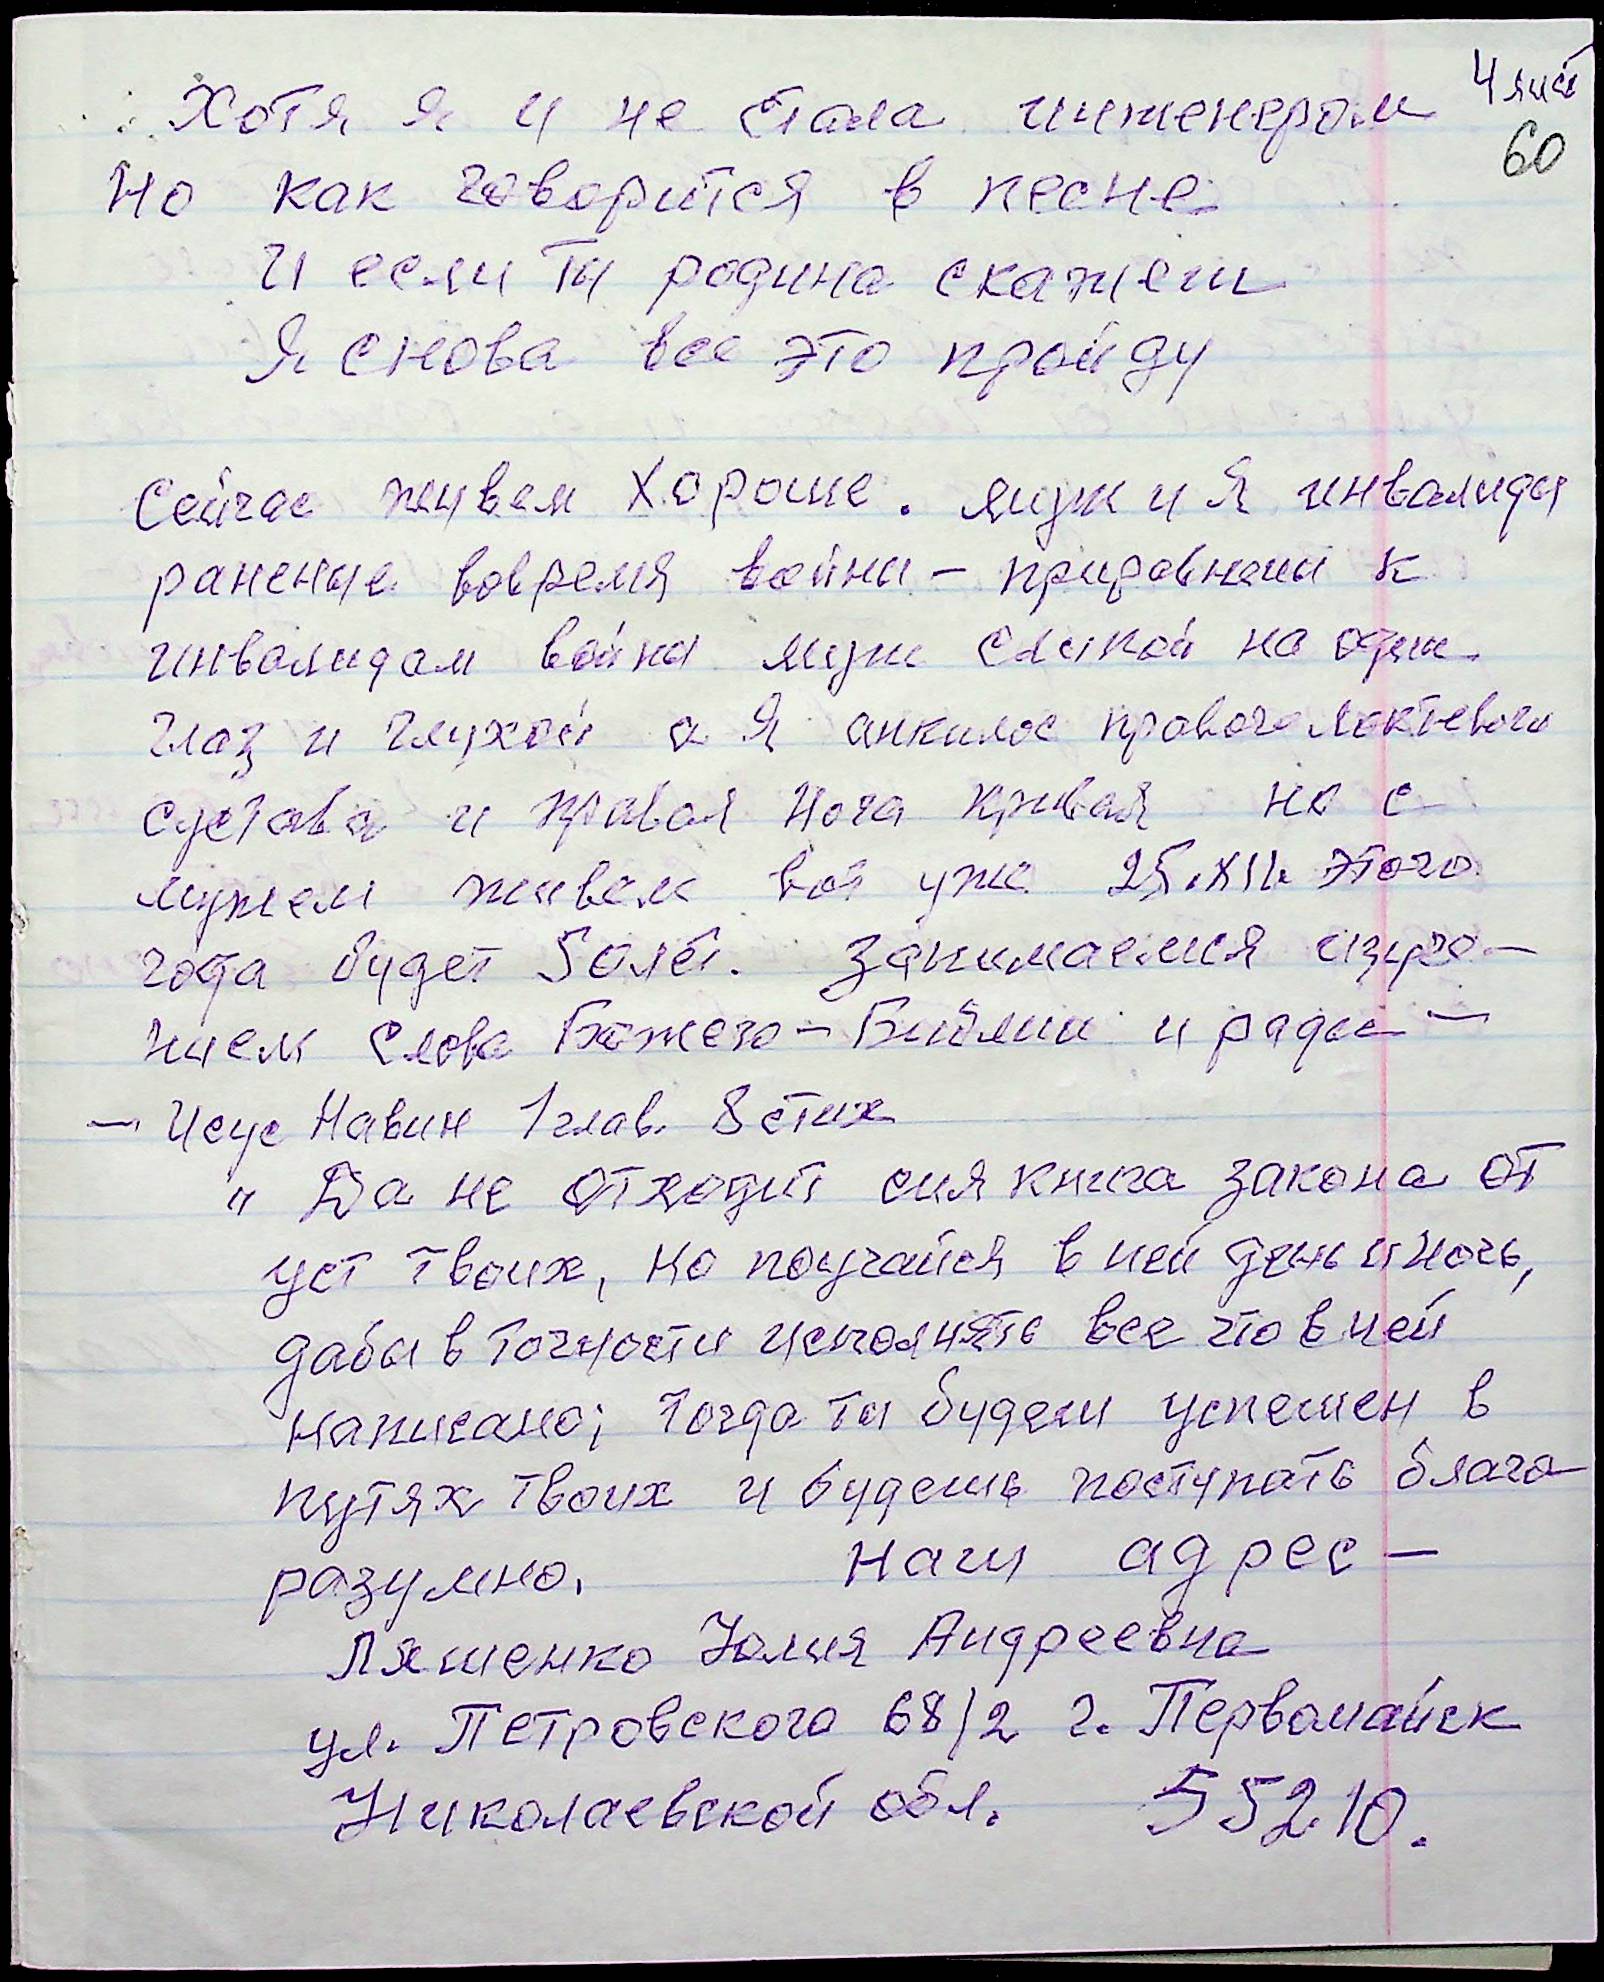 4 лист
60
Хотя я и не стала инженером
Но как говорится в песне
И если ты родина скажеш
Я снова все это пройду
Сейчас живем хороше. муж и я инвалиды
раненые вовремя войны - приравнены к
инвалидам войны муж слепой на один
глаз и глухой а я анкилос правого локтевого
сустава и правая нога кривая но с
мужем живем вот уже 25.XII. этого
года будет 50 лет. Занимаемся изуче-
нием слова Божего - Библии и рады -
- Исус Навин 1 глав. 8 стих
" Да не отходит сия книга закона от
уст твоих, но поучайся в ней день и ночь,
дабы в точности исполнять все что в ней
написано; тогда ты будеш успешен в
путях твоих и будешь поступать благо
разумно. Наш адрес -
Ляшенко Юлия Андреевна
ул. Петровского 68/2 г. Первомайск
Николаевской обл. 55210.